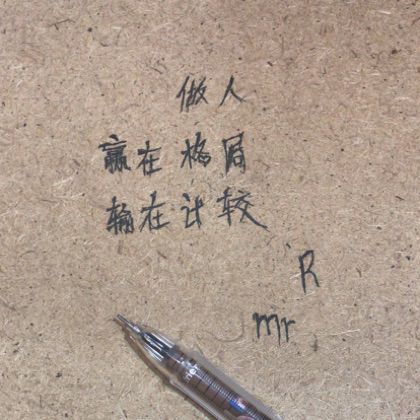 做人
赢在格局
输在计较
R
mr